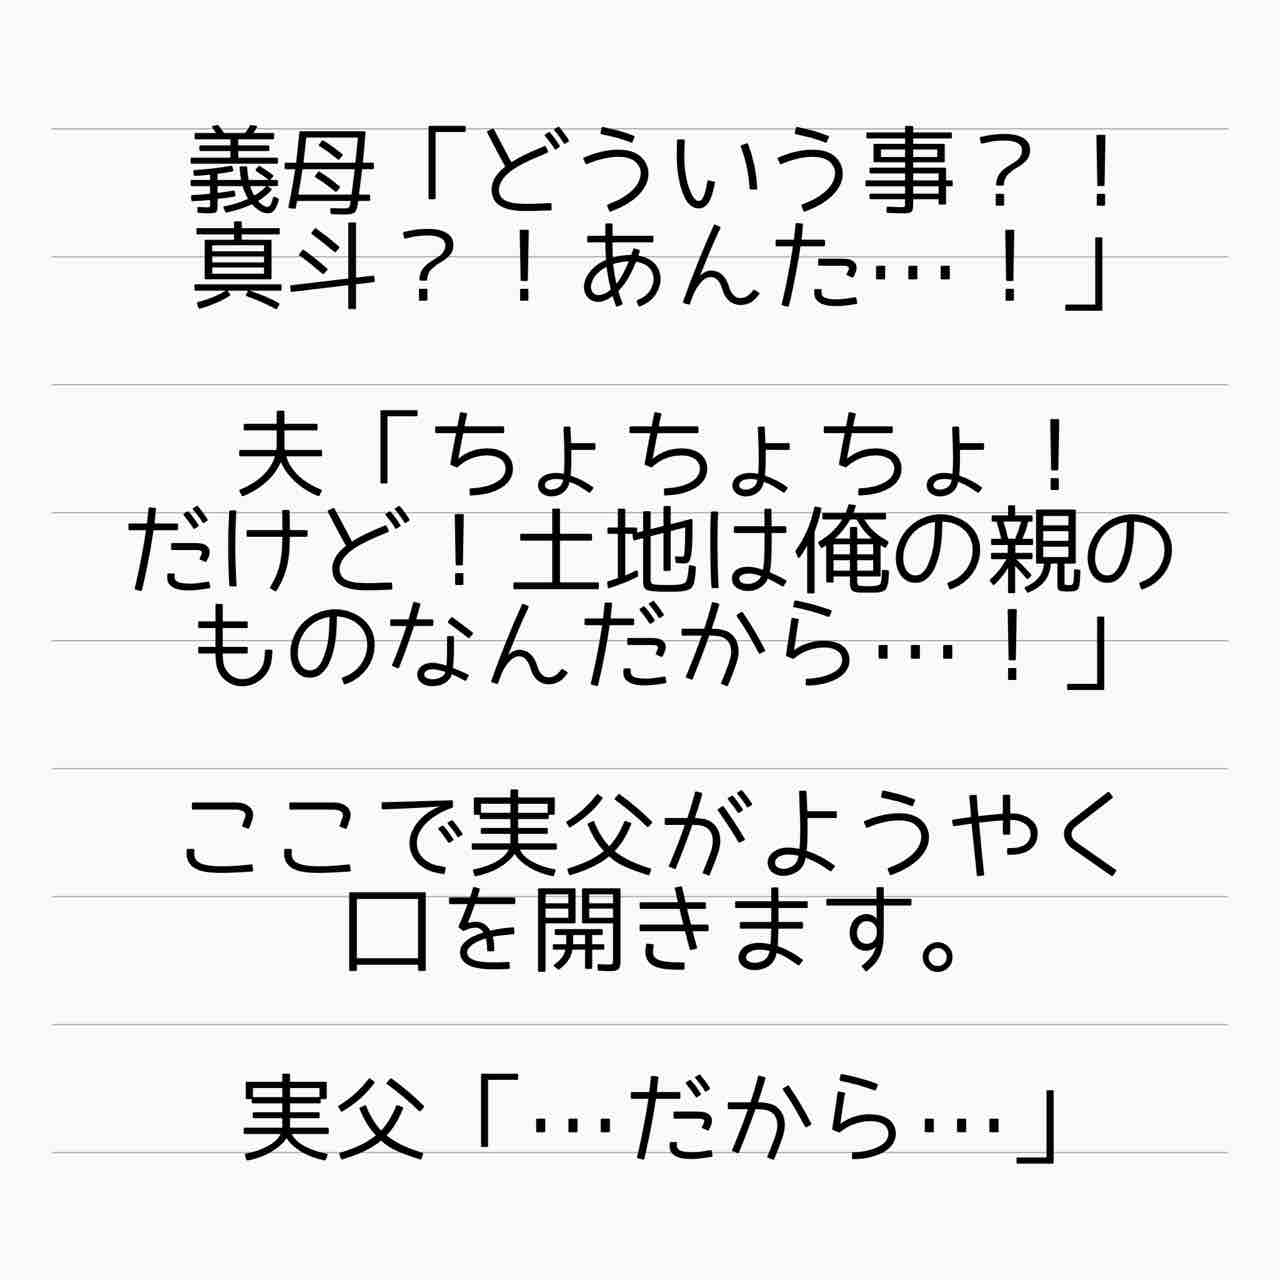 義母「どういう事？！
真斗？！あんた…！」
夫「ちょちょちょ！
だけど！土地は俺の親の
ものなんだから…！」
ここで実父がようやく
口を開きます。
実父「…だから…」